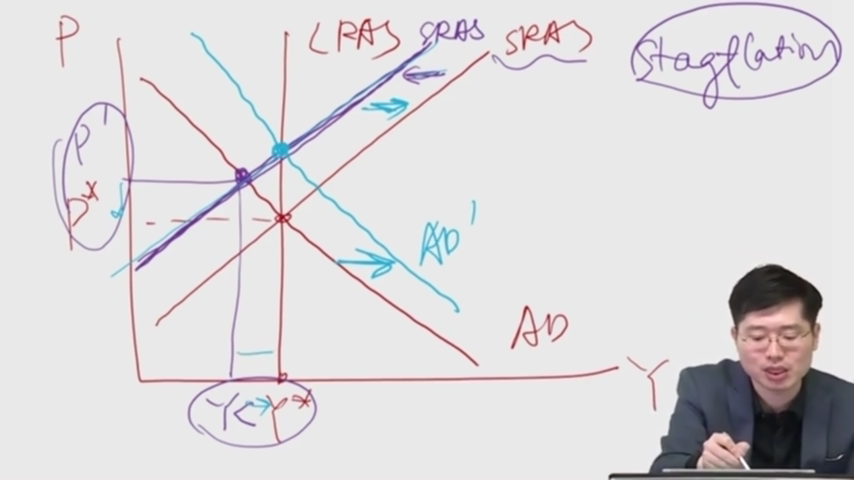 P
LRAS SRAS SRAS
Stagflation
P'
P*
AD'
AD
Y
Y< Y*